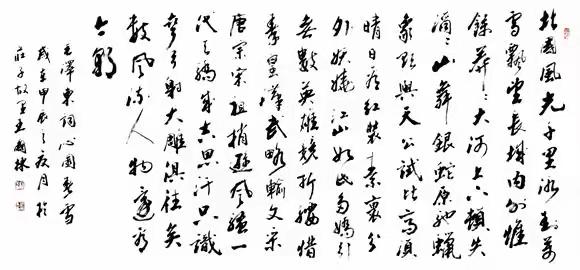 北國風光千里冰封萬
里雪飄望長城内外惟
餘莽〻大河上下頓失
滔〻山舞銀蛇原馳蠟
象欲與天公試比高須
晴日看紅裝素裹分
外妖嬈江山如此多嬌引
無數英雄競折腰惜
秦皇漢武略輸文采
唐宗宋祖稍遜風騷一
代天驕成吉思汗只識
彎弓射大雕俱往矣
數風流人物還看
今朝
毛澤東詞沁園春雪
歲在甲辰之夜月於
莊子故里